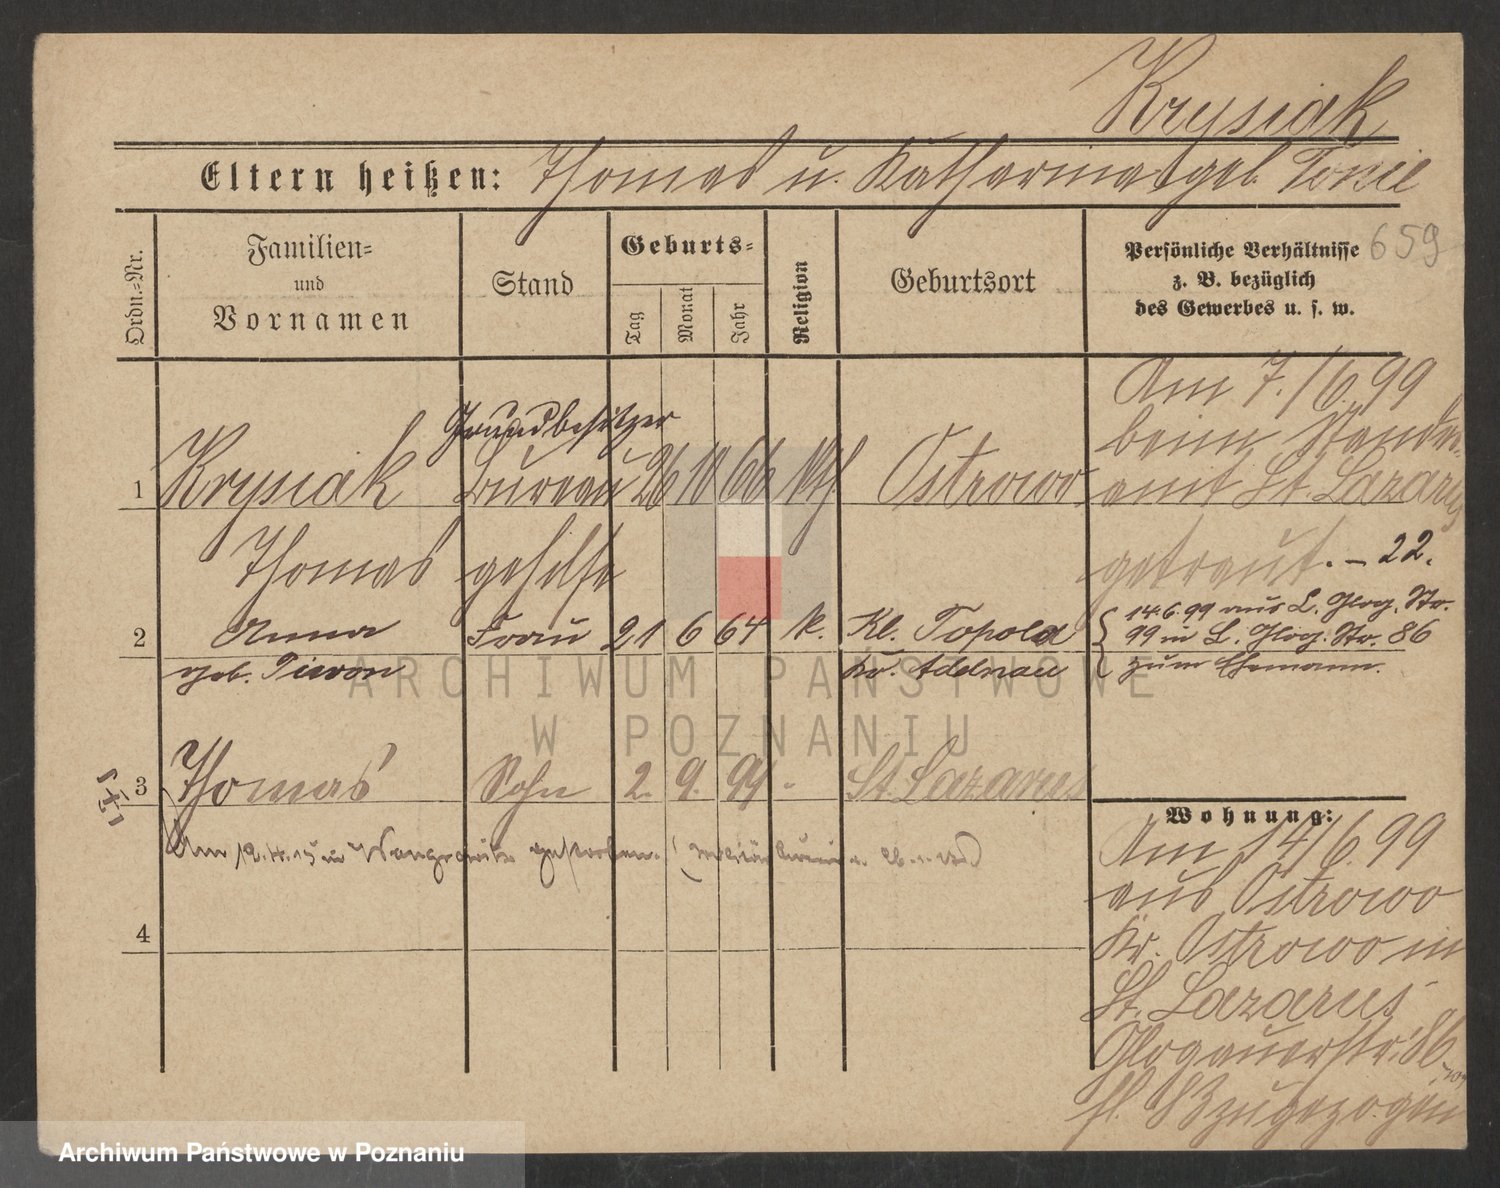 Krysiak
Eltern heißen: Thomas u. Katharina geb.
659
Ordn.-Nr.
Familien-
und
Vornamen
Stand
Geburts-
Tag
Monat
Jahr
Religion
Geburtsort
Persönliche Verhältnisse
z. B. bezüglich
des Gewerbes u. s. w.
Grundbesitzer
1 Krysiak Bureau 26 10 66 kth Ostrowo
Thomas gehilfe
Am 7./6. 99
beim Standes-
amt St. Lazarus
getraut. – 22.
2 Anna Frau 21 6 64 k. Kl. Topola
geb. Piwon Kr. Adelnau
14.6.99 aus L. Glog. Str.
99 in L. Glog. Str. 86
zum Ehemann.
3 Thomas Sohn 2. 9. 99 - St. Lazarus
Am 12.4.15 in gestorben.
4
Wohnung:
Am 14/6. 99
aus Ostrowo
Kr. Ostrowo in
St. Lazarus
Glogauerstr. 86
zugezogen
ARCHIWUM PAŃSTWOWE
W POZNANIU
Archiwum Państwowe w Poznaniu